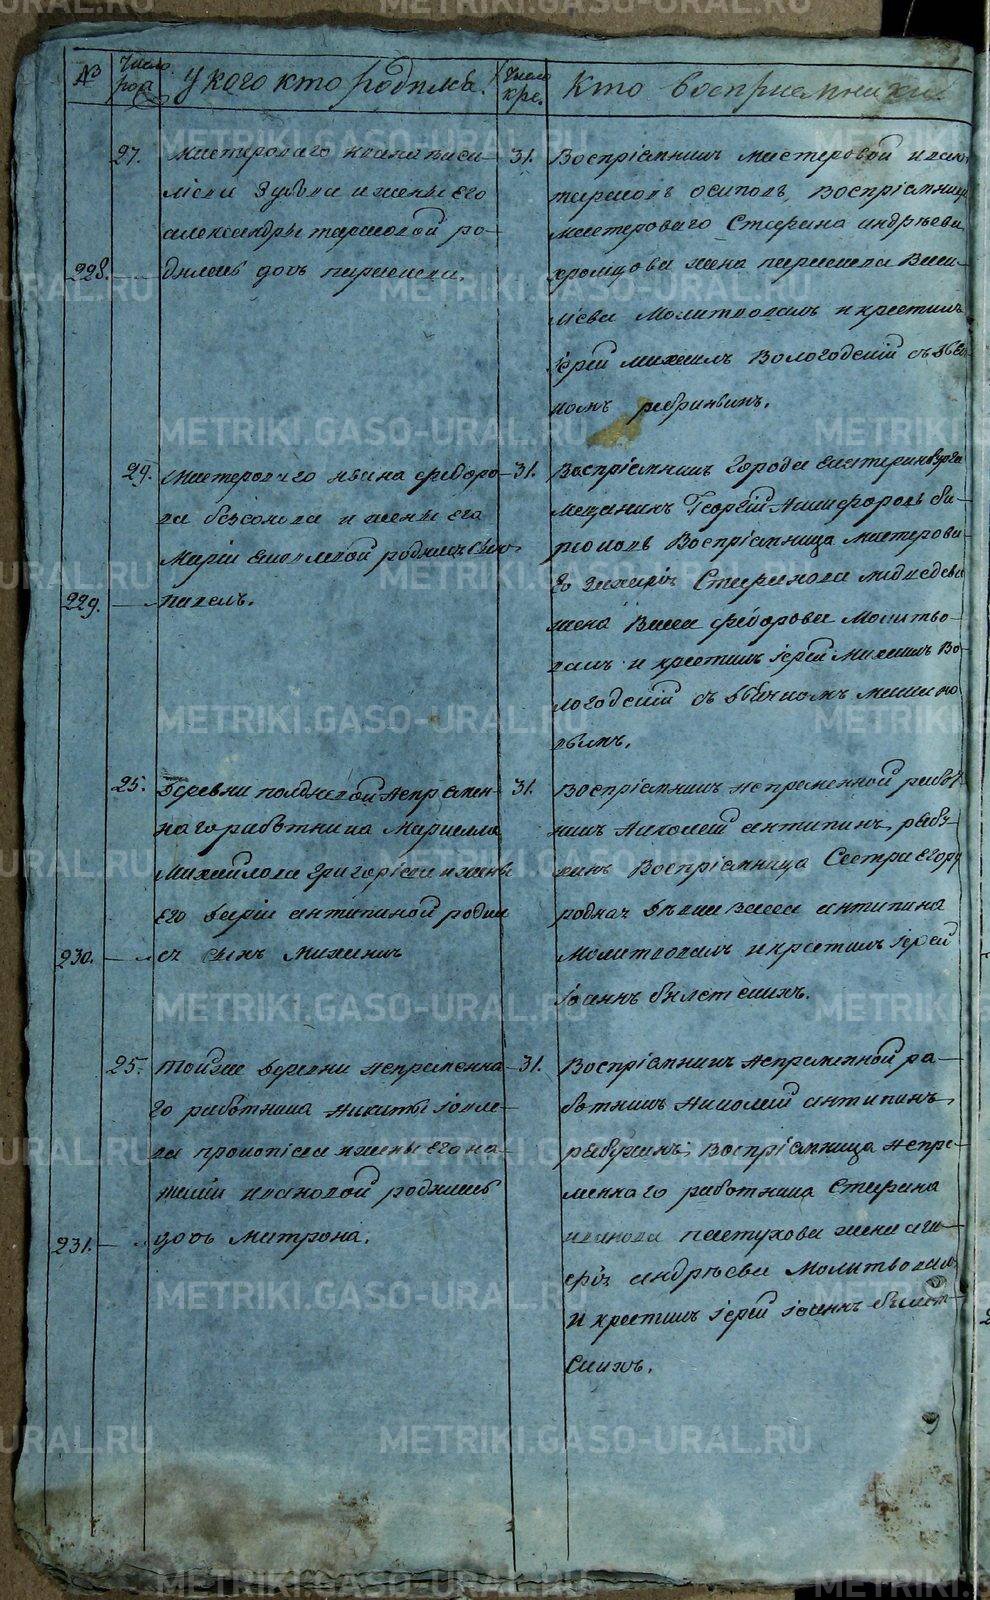 №
Число
род.
У кого кто родился.
Число
кре.
Кто восприемники.
27.
Мастероваго Ивана Васи-
льева Зубова и жены его
александры тарасовой ро-
228.
дилась дочь параскева.
31.
Воспріемникъ мастеровой иван
тарасовъ осиповъ, Воспріемница
мастероваго Стефана андрѣева
храмцова жена параскева Васи-
льева Молитвовалъ и крестилъ
іерей михаилъ Вологодскій съ дьяч-
комъ
29.
Мастероваго ивана федоро-
ва безсонова и жены его
Маріи яковлевой родился сынъ
229.
павелъ.
31.
Воспріемникъ города екатеринбурга
мещанинъ Георгій Никифоровъ ба-
Воспріемница мастерова-
го захаріи Стефанова медведева
жена Васса федорова Молитво-
валъ и крестилъ іерей михаилъ Во-
логодскій съ дьячкомъ
25.
Деревни полдневой непремен-
наго работника
Михайлова григорьева и жены
его даріи антипиной родил
230.
ся сынъ михаилъ
31.
Воспріемникъ непременной работ
никъ николай антипинъ рябу-
хинъ Воспріемница Сестра его ру
родная дѣвка васса антипина
Молитвовалъ и крестилъ іерей
іоаннъ
25.
Тойже деревни непременна-
го работника никиты іовле-
ва прокопьева и жены его на-
таліи ивановой родилась
231.
дочь матрона.
31.
Воспріемникъ непременной ра-
ботникъ николай антипинъ
рябухинъ, Воспріемница непре-
меннаго работника Стефана
иванова пастухова жена ага-
фія андрѣева Молитвовалъ
и крестилъ іерей іоаннъ
METRIKI.GASO-URAL.RU